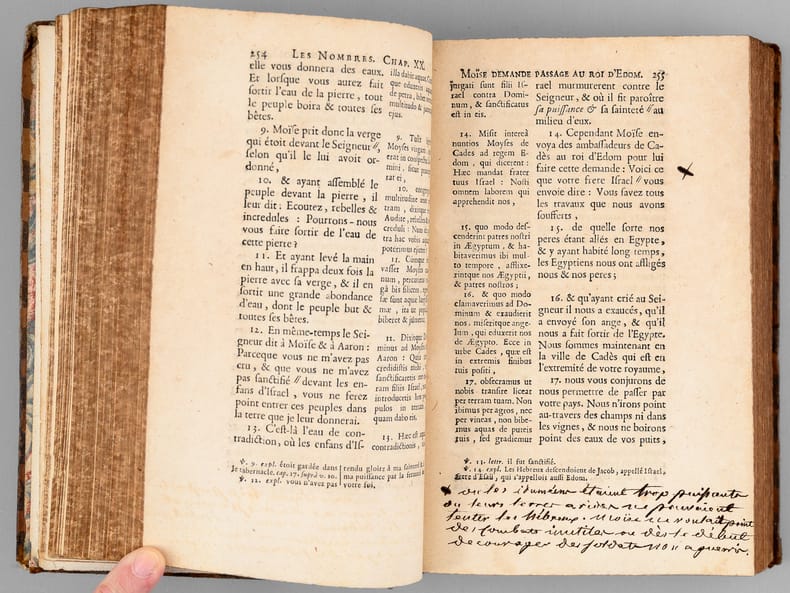 254 LES NOMBRES. CHAP. XX.
elle vous donnera des eaux.
Et lorsque vous aurez fait
sortir l'eau de la pierre, tout
le peuple boira & toutes ses
bêtes.
9. Moïse prit donc la verge
qui étoit devant le Seigneur //,
selon qu'il le lui avoit or-
donné,
10. & ayant assemblé le
peuple devant la pierre, il
leur dit: Ecoutez, rebelles &
incredules : Pourrons-nous
vous faire sortir de l'eau de
cette pierre?
11. Et ayant levé la main
en haut, il frappa deux fois la
pierre avec sa verge, & il en
sortit une grande abondance
d'eau, dont le peuple but &
toutes ses bêtes.
12. En même-temps le Sei-
gneur dit à Moïse & à Aaron:
Parceque vous ne m'avez pas
cru, & que vous ne m'avez
pas sanctifié // devant les en-
fans d'Israel, vous ne ferez
point entrer ces peuples dans
la terre que je leur donnerai.
13. C'est-là l'eau de con-
tradiction, où les enfans d'Is-
illa dabit aquas
que eduxeris aquam
de petra, bibet
multitudo & jumenta
ejus.
9. Tulit
Moyses virgam
erat in conspectu
mini, sicut
rat ei,
10. congreg
multitudine
tram, dixitque
Audite, rebelles &
creduli : Num
tra hac vobis aquam
poterimus ejicere?
11. Cùmque
vasset Moyses
num, percutiens
gâ bis silicem,
sæ sunt aquæ larg
mæ, ita ut populus
biberet & jumenta
12. Dixitque
minus ad Moysen
Aaron : Quia
credidistis mihi,
sanctificaretis me
ram filiis Israel,
introducetis hos
pulos in terram
quam dabo eis.
13. Hæc est aqua
contradictionis,
℣. 9. expl. étoit gardée dans
le tabernacle. cap. 17. suprà v. 10.
℣. 12. expl. vous n'avez pas
tendu gloire à ma sainteté
ma puissance par la fermeté
votre foi.
MOÏSE DEMANDE PASSAGE AU ROI D'EDOM. 255
jurgati sunt filii Is-
rael contra Domi-
num, & sanctificatus
est in eis.
14. Misit intereà
nuntios Moyses de
Cades ad regem E-
dom, qui dicerent :
Hæc mandat frater
tuus Israel : Nosti
omnem laborem qui
apprehendit nos,
15. quo modo des-
cenderint patres nostri
in Ægyptum, & ha-
bitaverimus ibi mul-
to tempore, afflixe-
rintque nos Ægyptii,
& patres nostros;
16. & quo modo
clamaverimus ad Do-
minum & exaudierit
nos, miseritque ange-
lum, qui eduxerit nos
de Ægypto. Ecce in
urbe Cades, quæ est
in extremis finibus
tuis positi,
17. obsecramus ut
nobis transire liceat
per terram tuam. Non
ibimus per agros, nec
per vineas, non bibe-
mus aquas de puteis
tuis, sed gradiemur
rael murmurerent contre le
Seigneur, & où il fit paroître
sa puissance & sa sainteté // au
milieu d'eux.
14. Cependant Moïse en-
voya des ambassadeurs de Ca-
dès au roi d'Edom pour lui
faire cette demande : Voici ce
que votre frere Israel // vous
envoie dire : Vous savez tous
les travaux que nous avons
soufferts,
15. de quelle sorte nos
peres étant allés en Egypte,
& y ayant habité long temps,
les Egyptiens nous ont affligés
nous & nos peres;
16. & qu'ayant crié au Sei-
gneur il nous a exaucés, qu'il
a envoyé son ange, & qu'il
nous a fait sortir de l'Egypte.
Nous sommes maintenant en
la ville de Cadès qui est en
l'extrémité de votre royaume,
17. nous vous conjurons de
nous permettre de passer par
votre pays. Nous n'irons point
au-travers des champs ni dans
les vignes, & nous ne boirons
point des eaux de vos puits,
℣. 13. lettr. il fut sanctifié.
℣. 14. expl. Les Hebreux descendoient de Jacob, appellé Israel,
frere d'Esaü, qui s'appelloit aussi Edom.
ou les iduméens étaient trop puissants
ou leurs terres arides ne pouvaient
tenter les hébreux. Moïse ne voulait point
des combats inutiles ou dès le début
decourager des soldats non aguerris.